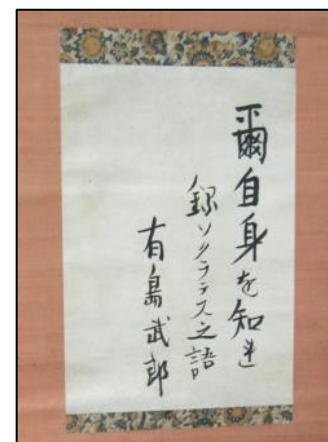 爾自身を知れ
録ソクラテス之語
有島武郎